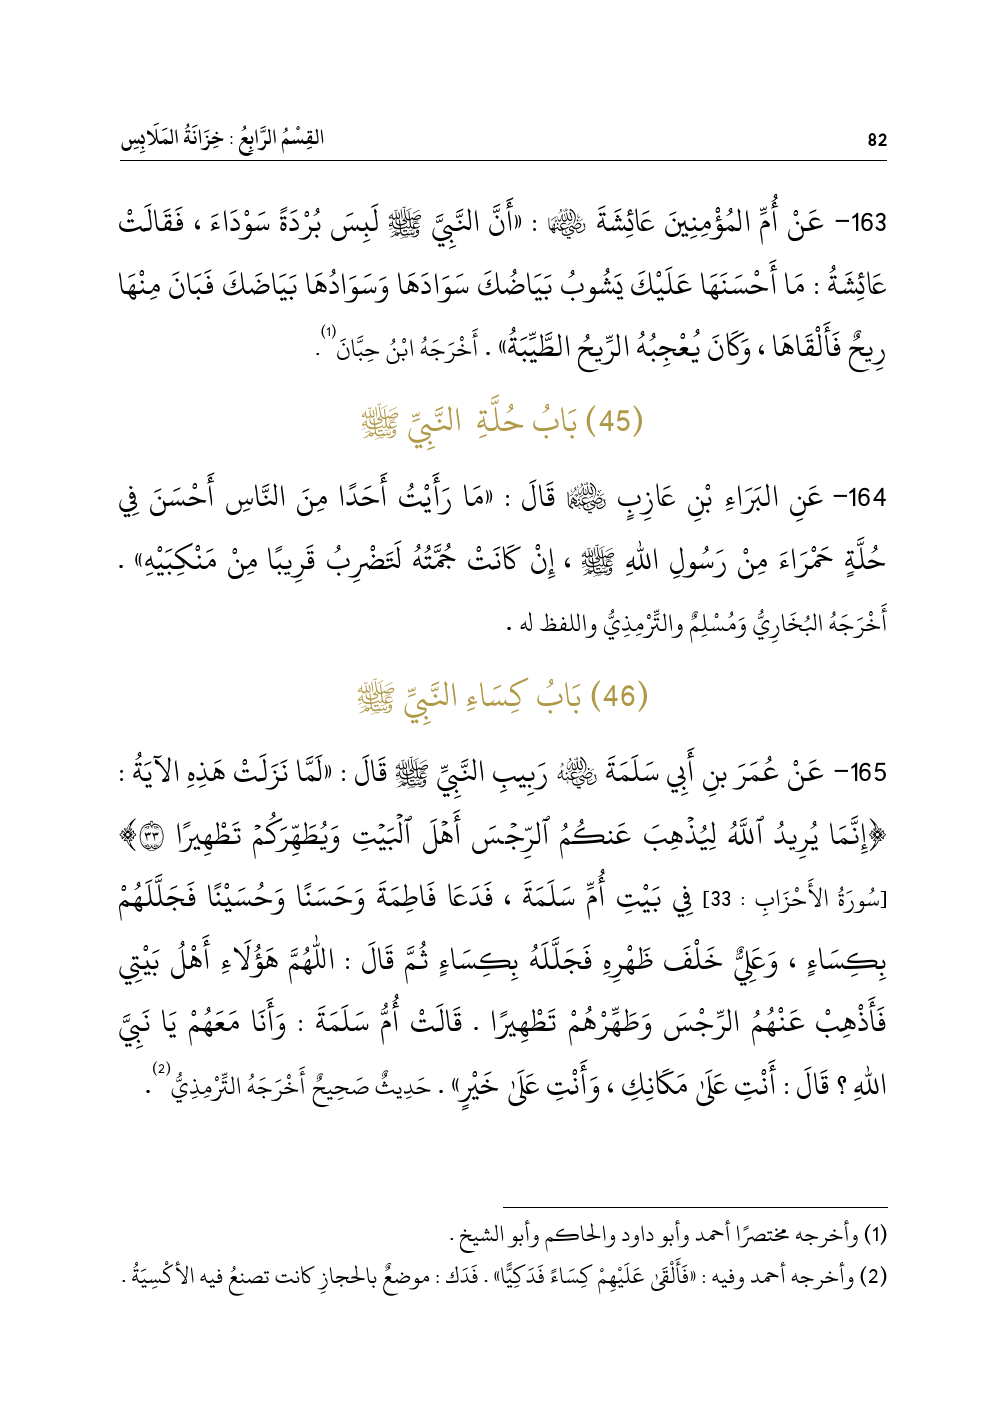 82 القِسْمُ الرَّابِعُ : خِزَانَةُ المَلَابِسِ
163- عَنْ أُمِّ المُؤْمِنِينَ عَائِشَةَ رضي الله عنها : «أَنَّ النَّبِيَّ ﷺ لَبِسَ بُرْدَةً سَوْدَاءَ ، فَقَالَتْ
عَائِشَةُ : مَا أَحْسَنَهَا عَلَيْكَ يَشُوبُ بَيَاضُكَ سَوَادَهَا وَسَوَادُهَا بَيَاضَكَ فَبَانَ مِنْهَا
رِيحٌ فَأَلْقَاهَا ، وَكَانَ يُعْجِبُهُ الرِّيحُ الطَّيِّبَةُ» . أَخْرَجَهُ ابْنُ حِبَّانَ(1) .
(45) بَابُ حُلَّةِ النَّبِيِّ ﷺ
164- عَنِ البَرَاءِ بْنِ عَازِبٍ رضي الله عنهما قَالَ : «مَا رَأَيْتُ أَحَدًا مِنَ النَّاسِ أَحْسَنَ فِي
حُلَّةٍ حَمْرَاءَ مِنْ رَسُولِ اللهِ ﷺ ، إِنْ كَانَتْ جُمَّتُهُ لَتَضْرِبُ قَرِيبًا مِنْ مَنْكِبَيْهِ» .
أَخْرَجَهُ البُخَارِيُّ وَمُسْلِمٌ والتِّرْمِذِيُّ واللفظ له .
(46) بَابُ كِسَاءِ النَّبِيِّ ﷺ
165- عَنْ عُمَرَ بنِ أَبِي سَلَمَةَ رضي الله عنه رَبِيبِ النَّبِيِّ ﷺ قَالَ : «لَمَّا نَزَلَتْ هَذِهِ الآيَةُ :
﴿إِنَّمَا يُرِيدُ ٱللَّهُ لِيُذْهِبَ عَنكُمُ ٱلرِّجْسَ أَهْلَ ٱلْبَيْتِ وَيُطَهِّرَكُمْ تَطْهِيرًا ۝٣٣﴾
[سُورَةُ الأَحْزَابِ : 33] فِي بَيْتِ أُمِّ سَلَمَةَ ، فَدَعَا فَاطِمَةَ وَحَسَنًا وَحُسَيْنًا فَجَلَّلَهُمْ
بِكِسَاءٍ ، وَعَلِيٌّ خَلْفَ ظَهْرِهِ فَجَلَّلَهُ بِكِسَاءٍ ثُمَّ قَالَ : اللَّهُمَّ هَؤُلَاءِ أَهْلُ بَيْتِي
فَأَذْهِبْ عَنْهُمُ الرِّجْسَ وَطَهِّرْهُمْ تَطْهِيرًا . قَالَتْ أُمُّ سَلَمَةَ : وَأَنَا مَعَهُمْ يَا نَبِيَّ
اللهِ ؟ قَالَ : أَنْتِ عَلَىٰ مَكَانِكِ ، وَأَنْتِ عَلَىٰ خَيْرٍ» . حَدِيثٌ صَحِيحٌ أَخْرَجَهُ التِّرْمِذِيُّ(2) .
(1) وأخرجه مختصرًا أحمد وأبو داود والحاكم وأبو الشيخ .
(2) وأخرجه أحمد وفيه : «فَأَلْقَىٰ عَلَيْهِمْ كِسَاءً فَدَكِيًّا» . فَدَك : موضعٌ بالحجازِ كانت تصنعُ فيه الأكْسِيَةُ .